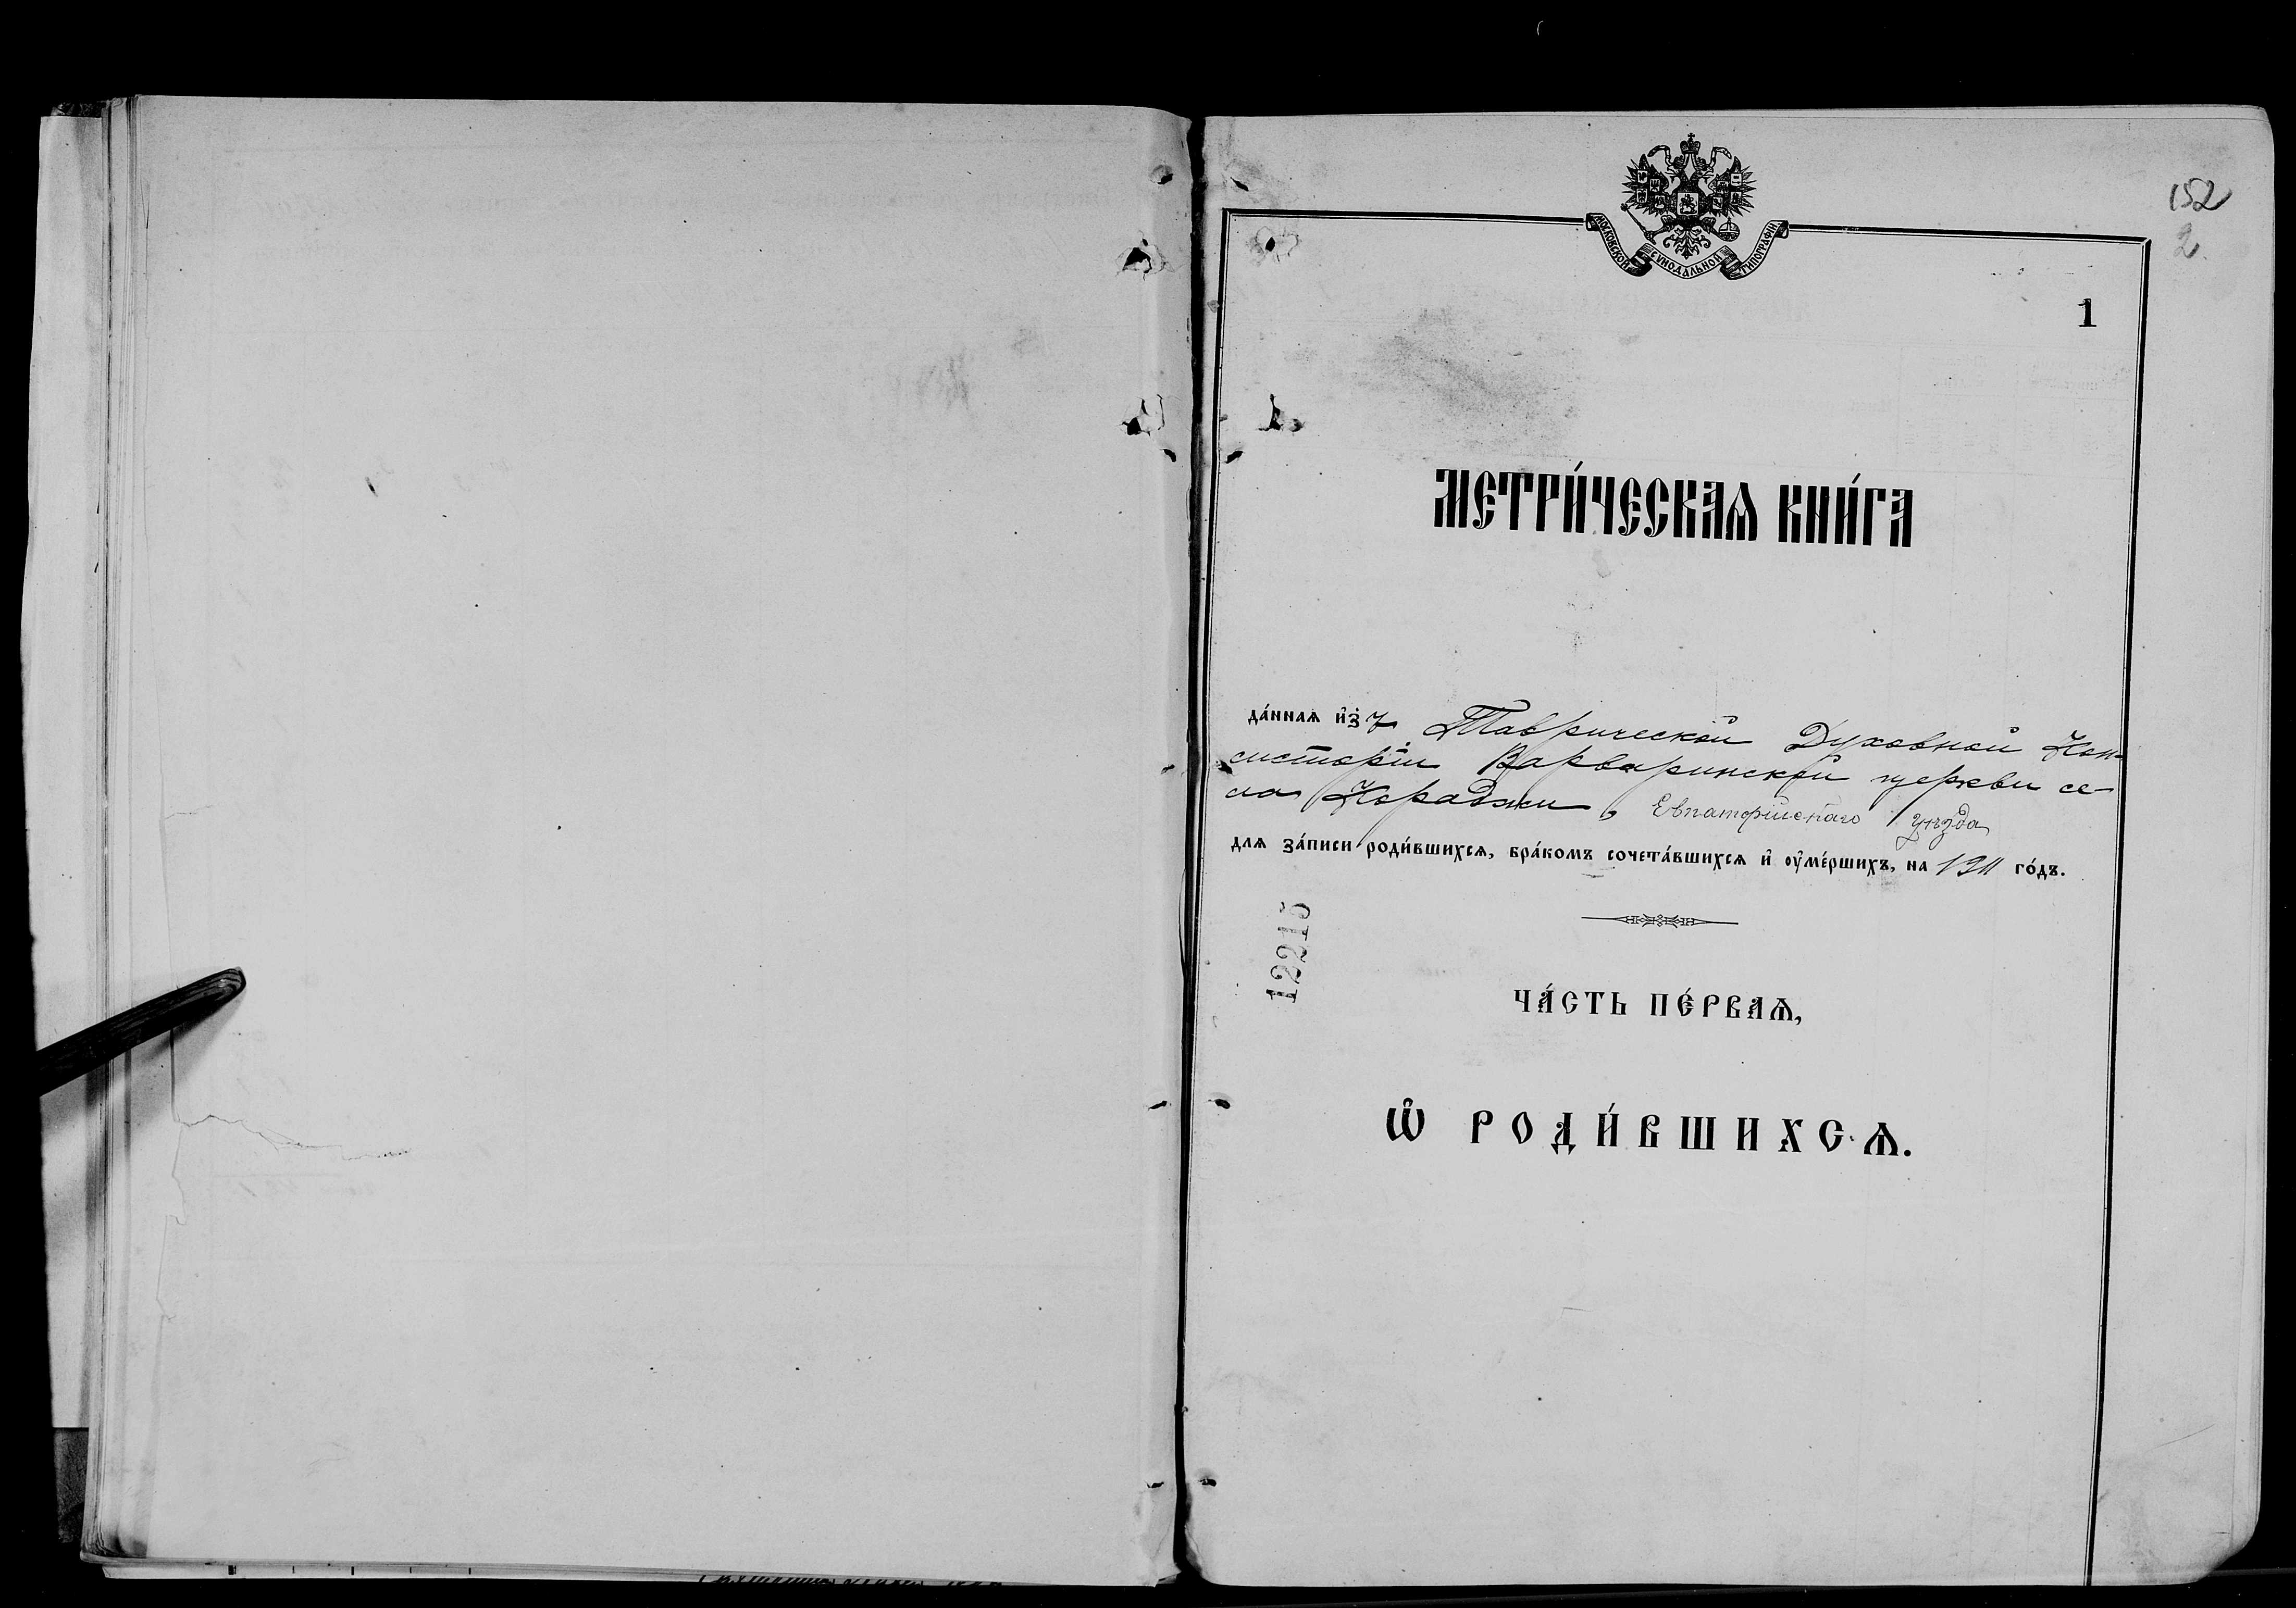 МОСКОВСКОЙ СУНОДАЛЬНОЙ ТИПОГРАФІИ
152
2.
1
МЕТРИ́ЧЕСКАѦ КНИ́ГА
да́ннаѧ и҆зъ Таврической Духовной Кон-
систоріи Варваринской церкви се-
ла Караджи, Евпаторійскаго уѣзда
длѧ за́писи роди́вшихсѧ, бра́комъ сочета́вшихсѧ и҆ оу҆ме́ршихъ, на 1911 го́дъ.
12215
ЧА́СТЬ ПЕ́РВАѦ,
Ѡ҆ РОДИ́ВШИХСѦ.